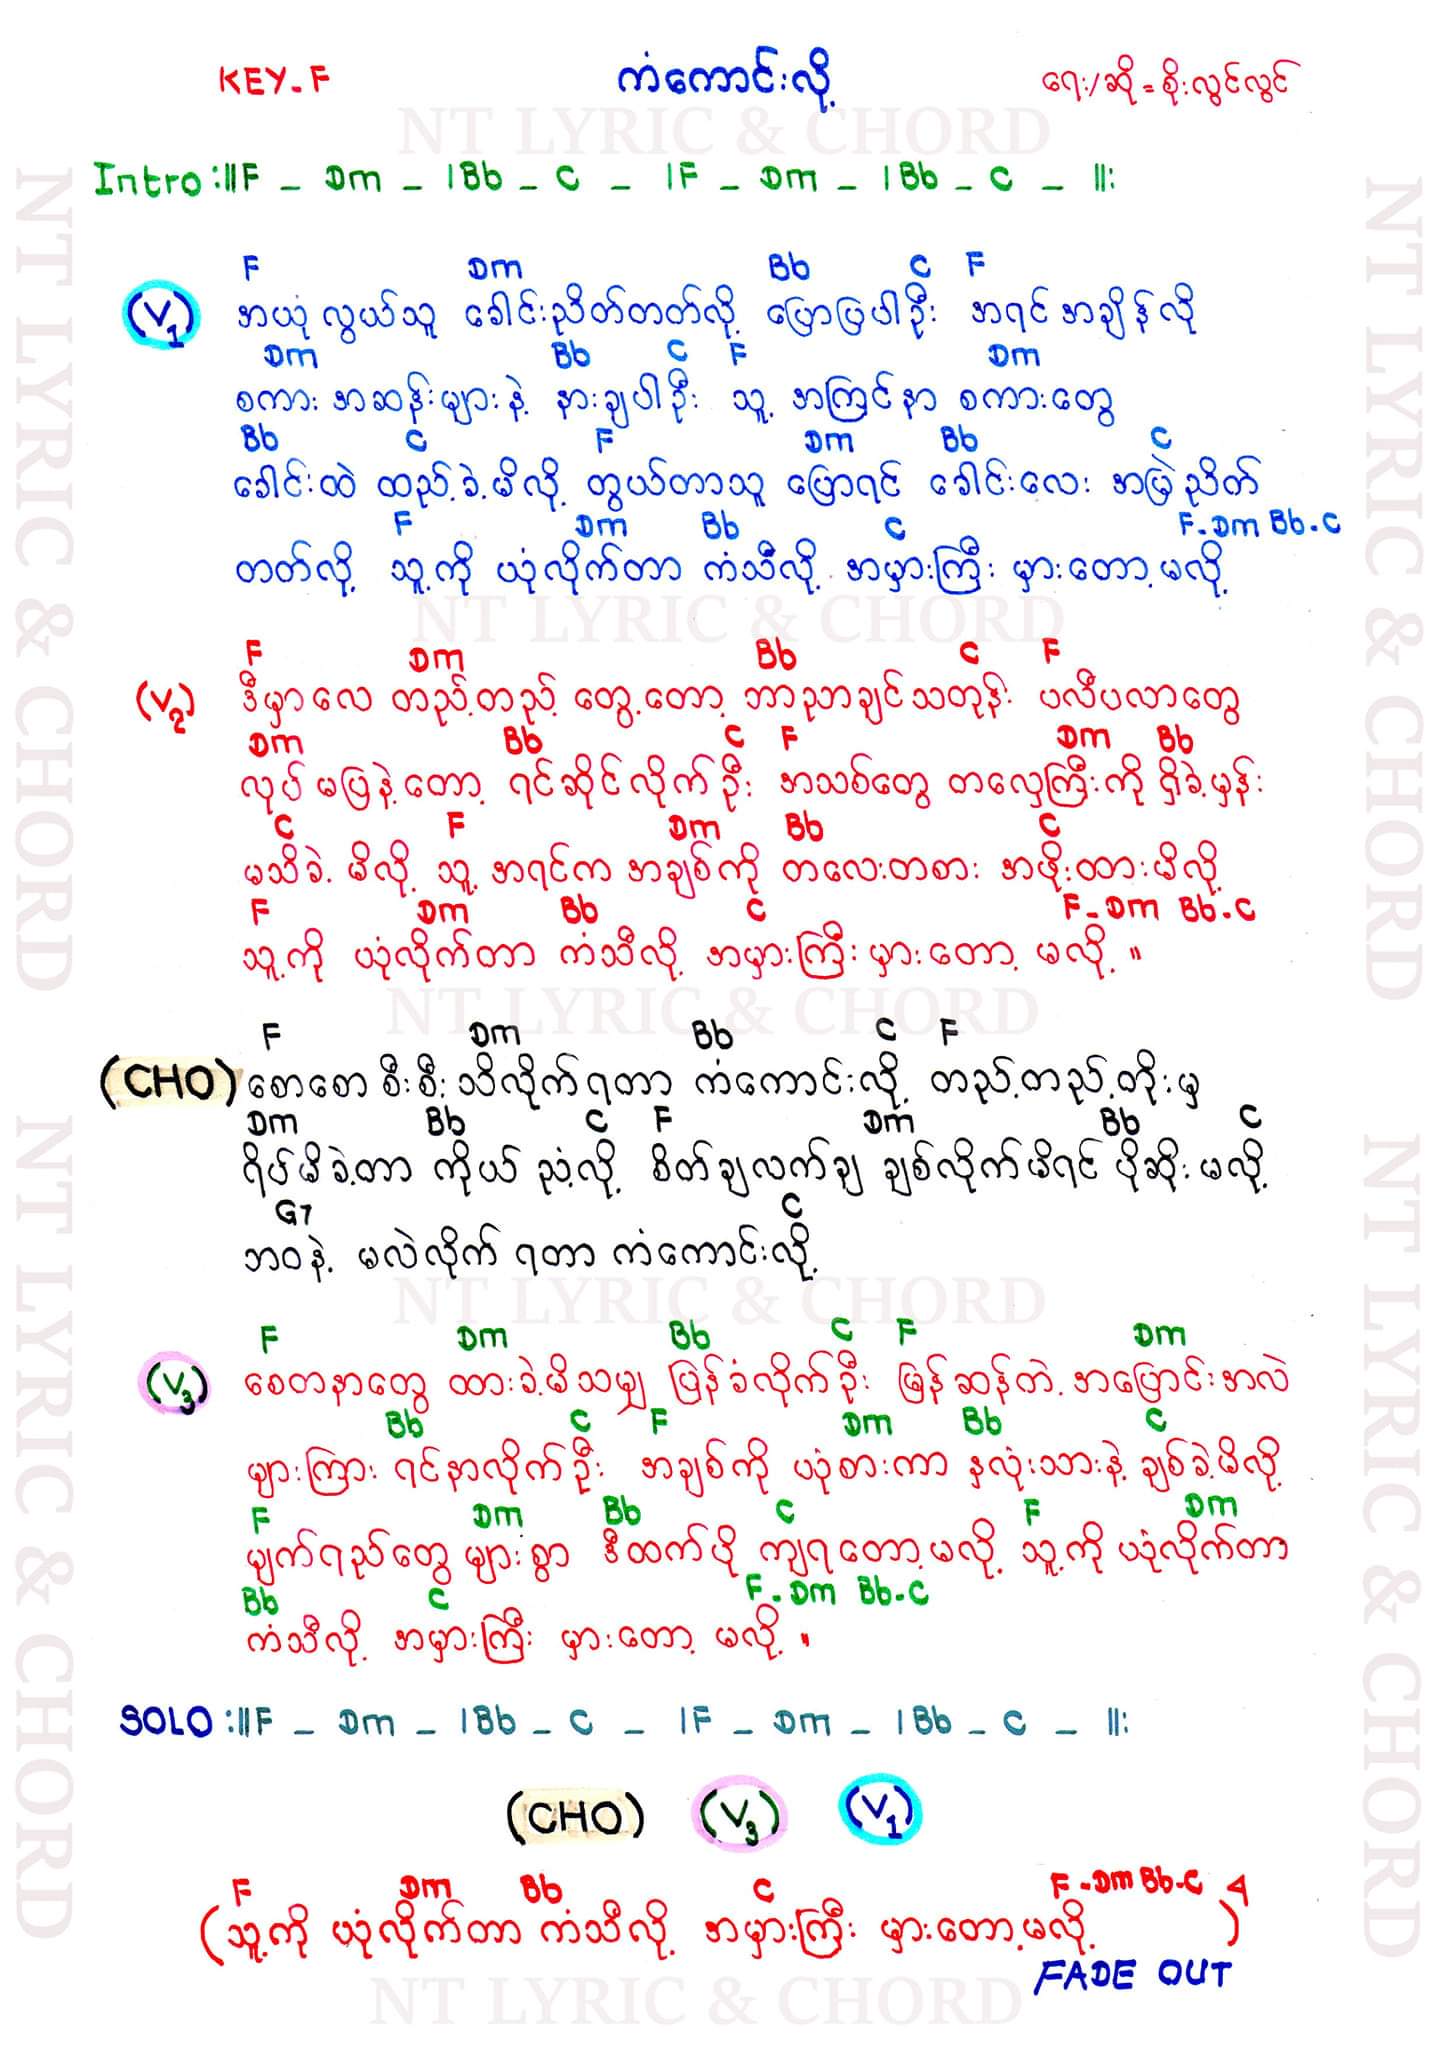 KEY-F ကံကောင်းလို့ ရေး/ဆို = စိုးလွင်လွင်
NT LYRIC & CHORD
Intro :||F _ Dm _ |Bb _ C _ |F _ Dm _ |Bb _ C _ ||:
F Dm Bb C F
(V1) အယုံလွယ်သူ ခေါင်းညိတ်တတ်လို့ ပြောပြပါဦး အရင်အချိန်လို
Dm Bb C F Dm
စကားအဆန်းများနဲ့ နားချပါဦး သူ့ အကြင်နာ စကားတွေ
Bb C F Dm Bb C
ခေါင်းထဲ ထည့်ခဲ့မိလို့ တွယ်တာသူ ပြောရင် ခေါင်းလေး အမြဲညိတ်
F Dm Bb C F-Dm Bb-C
တတ်လို့ သူ့ကို ယုံလိုက်တာ ကံသီလို့ အမှားကြီး မှားတော့မလို့
NT LYRIC & CHORD
F Dm Bb C F
(V2) ဒီမှာလေ တည့်တည့် တွေ့တော့ ဘာဥာချင်သတုန်း ပလီပလာတွေ
Dm Bb C F Dm Bb
လုပ်မပြနဲ့တော့ ရင်ဆိုင်လိုက်ဦး အသစ်တွေ တလှေကြီးကို ရှိခဲ့မှန်း
C F Dm Bb C
မသိခဲ့မိလို့ သူ့ အရင်က အချစ်ကို တလေးတစား အဖိုးထားမိလို့
F Dm Bb C F-Dm Bb-C
သူ့ကို ယုံလိုက်တာ ကံသီလို့ အမှားကြီးမှားတော့ မလို့ ။
NT LYRIC & CHORD
F Dm Bb C F
(CHO) စောစောစီးစီးသိလိုက်ရတာ ကံကောင်းလို့ တည့်တည့်တိုးမှ
Dm Bb C F Dm Bb C
ရိပ်မိခဲ့တာ ကိုယ် ညံ့လို့ စိတ်ချလက်ချ ချစ်လိုက်မိရင် ပိုဆိုးမလို့
G7 C
ဘဝနဲ့ မလဲလိုက် ရတာ ကံကောင်းလို့
NT LYRIC & CHORD
F Dm Bb C F Dm
(V3) စေတနာတွေ ထားခဲ့မိသမျှ ပြန်ခံလိုက်ဦး မြန်ဆန်တဲ့ အပြောင်းအလဲ
Bb C F Dm Bb C
များကြား ရင်နာလိုက်ဦး အချစ်ကို ယုံစားကာ နှလုံးသားနဲ့ ချစ်ခဲ့မိလို့
F Dm Bb C F Dm
မျက်ရည်တွေ များစွာ ဒီထက်ပို ကျရတော့မလို့ သူ့ကို ယုံလိုက်တာ
Bb C F-Dm Bb-C
ကံသီလို့ အမှားကြီး မှားတော့ မလို့ ။
SOLO :||F _ Dm _ |Bb _ C _ |F _ Dm _ |Bb _ C _ ||:
(CHO) (V3) (V1)
F Dm Bb C F-Dm Bb-C 4
(သူ့ကို ယုံလိုက်တာ ကံသီလို့ အမှားကြီး မှားတော့မလို့)
FADE OUT
NT LYRIC & CHORD
NT LYRIC & CHORD NT LYRIC & CHORD
NT LYRIC & CHORD NT LYRIC & CHORD